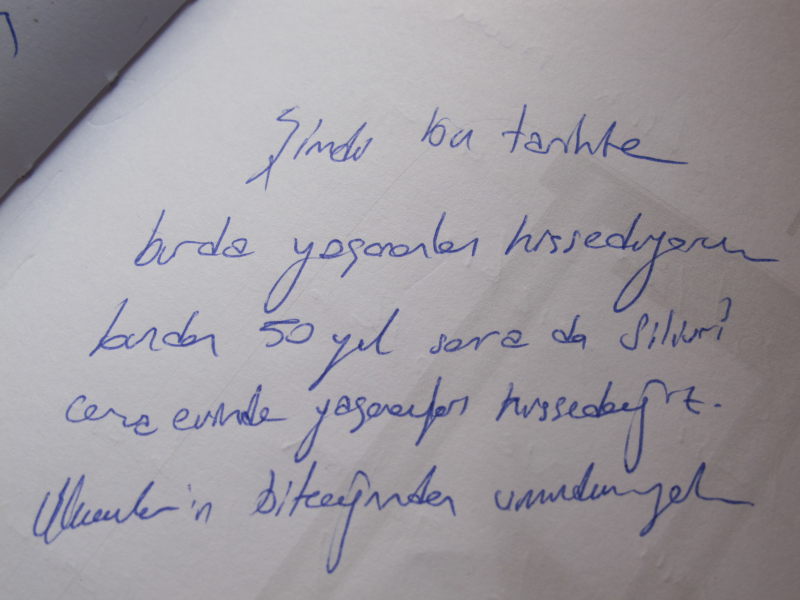 Şimdi bu tarihte
burda yaşananları hissediyorum
bundan 50 yıl sora da Silivri
ceza evinde yaşananları hissedeceğiz.
biteceğinden umudumuzu